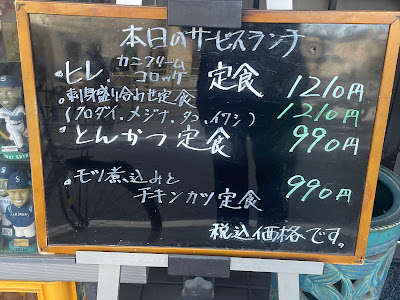 本日のサービスランチ
・ヒレ、カニクリームコロッケ 定食 1210円
・刺身盛り合わせ定食 1210円
(クロダイ、メジナ、タコ、イワシ)
・とんかつ定食 990円
・モツ煮込みと
チキンカツ定食 990円
税込価格です。